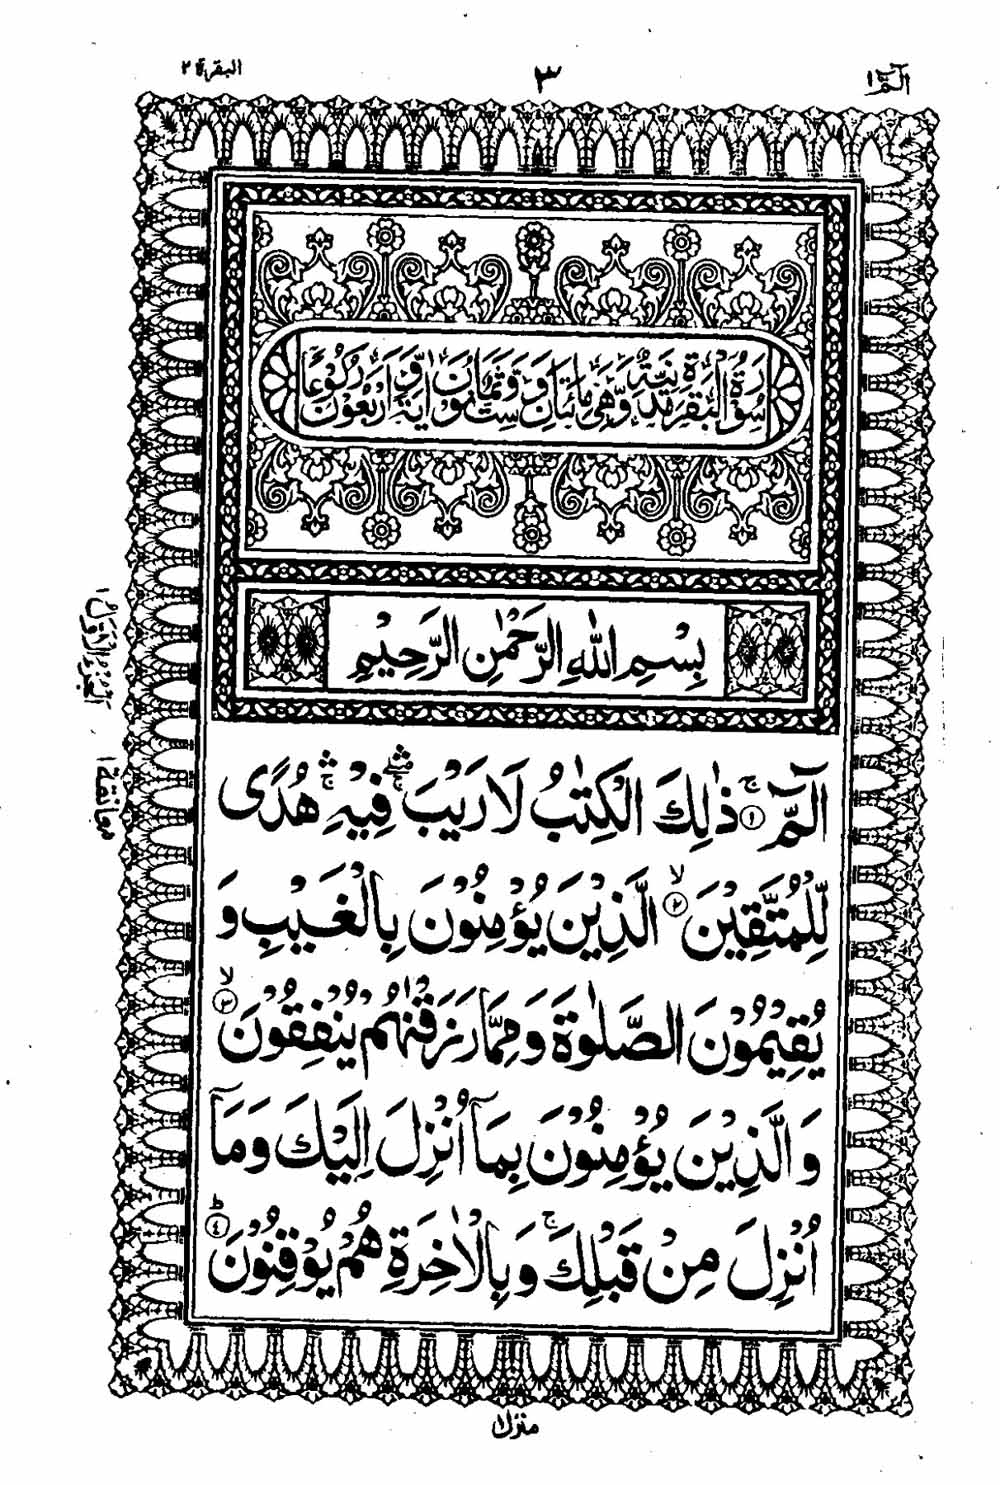 الٓمّٓ ١
٣
البقرة ٢
سُوْرَةُ الْبَقَرَةِ مَدَنِيَّةٌ وَّهِيَ مِائَتَانِ وَسِتٌّ وَّثَمَانُوْنَ اٰيَةً وَّاَرْبَعُوْنَ رُكُوْعًا
بِسْمِ اللهِ الرَّحْمٰنِ الرَّحِيْمِ
الٓمّٓ ۚ ﴿١﴾ ذٰلِكَ الْكِتٰبُ لَا رَيْبَ ۛۖۚ فِيْهِ ۛۚ هُدًى
لِّلْمُتَّقِيْنَ ۙ ﴿٢﴾ الَّذِيْنَ يُؤْمِنُوْنَ بِالْغَيْبِ وَ
يُقِيْمُوْنَ الصَّلٰوةَ وَمِمَّا رَزَقْنٰهُمْ يُنْفِقُوْنَ ۙ ﴿٣﴾
وَالَّذِيْنَ يُؤْمِنُوْنَ بِمَآ اُنْزِلَ اِلَيْكَ وَمَآ
اُنْزِلَ مِنْ قَبْلِكَ ۚ وَبِالْاٰخِرَةِ هُمْ يُوْقِنُوْنَ ؕ ﴿٤﴾
الجزء الاول ١
معانقة ١
منزل ١